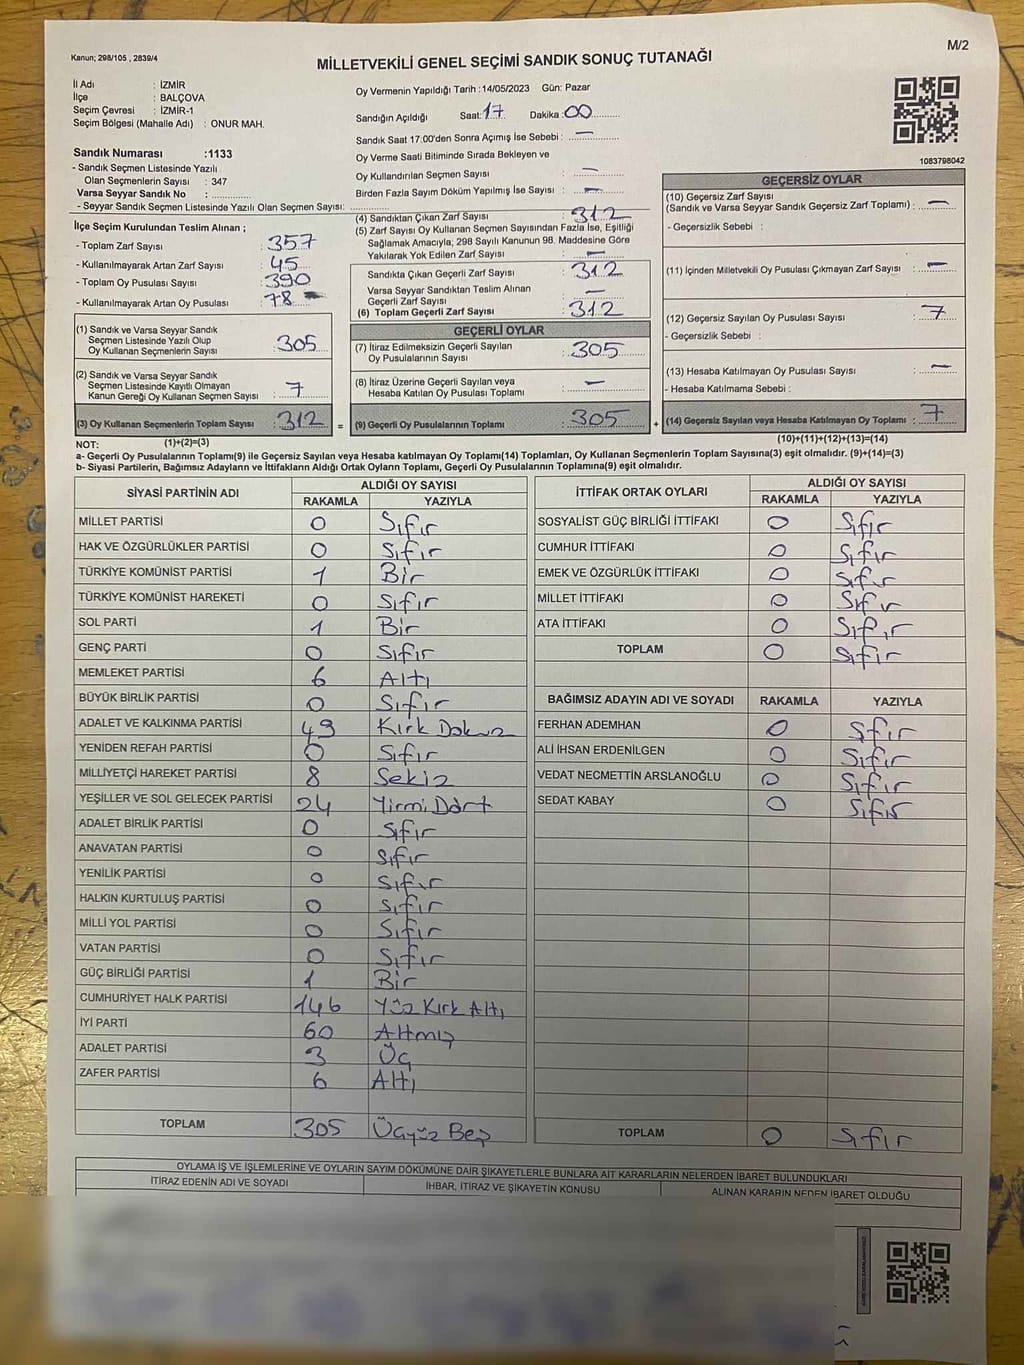 M/2
Kanun; 298/105 , 2839/4
MİLLETVEKİLİ GENEL SEÇİMİ SANDIK SONUÇ TUTANAĞI
İl Adı : İZMİR
İlçe : BALÇOVA
Seçim Çevresi : İZMİR-1
Seçim Bölgesi (Mahalle Adı) : ONUR MAH.
Sandık Numarası :1133
- Sandık Seçmen Listesinde Yazılı
Olan Seçmenlerin Sayısı : 347
Varsa Seyyar Sandık No :
- Seyyar Sandık Seçmen Listesinde Yazılı Olan Seçmen Sayısı:
Oy Vermenin Yapıldığı Tarih :14/05/2023 Gün: Pazar
Sandığın Açıldığı Saat: 17 Dakika : 00
Sandık Saat 17:00'den Sonra Açımış İse Sebebi : —
Oy Verme Saati Bitiminde Sırada Bekleyen ve
Oy Kullandırılan Seçmen Sayısı : —
Birden Fazla Sayım Döküm Yapılmış İse Sayısı : —
1083798042
İlçe Seçim Kurulundan Teslim Alınan ;
- Toplam Zarf Sayısı : 357
- Kullanılmayarak Artan Zarf Sayısı : 45
- Toplam Oy Pusulası Sayısı : 390
- Kullanılmayarak Artan Oy Pusulası : 78
(1) Sandık ve Varsa Seyyar Sandık
Seçmen Listesinde Yazılı Olup
Oy Kullanan Seçmenlerin Sayısı : 305
(2) Sandık ve Varsa Seyyar Sandık
Seçmen Listesinde Kayıtlı Olmayan
Kanun Gereği Oy Kullanan Seçmen Sayısı : 7
(3) Oy Kullanan Seçmenlerin Toplam Sayısı : 312
(1)+(2)=(3)
(4) Sandıktan Çıkan Zarf Sayısı : 312
(5) Zarf Sayısı Oy Kullanan Seçmen Sayısından Fazla İse, Eşitliği
Sağlamak Amacıyla; 298 Sayılı Kanunun 98. Maddesine Göre
Yakılarak Yok Edilen Zarf Sayısı : —
Sandıkta Çıkan Geçerli Zarf Sayısı : 312
Varsa Seyyar Sandıktan Teslim Alınan
Geçerli Zarf Sayısı : —
(6) Toplam Geçerli Zarf Sayısı : 312
GEÇERLİ OYLAR
(7) İtiraz Edilmeksizin Geçerli Sayılan
Oy Pusulalarının Sayısı : 305
(8) İtiraz Üzerine Geçerli Sayılan veya
Hesaba Katılan Oy Pusulası Toplamı : —
= (9) Geçerli Oy Pusulalarının Toplamı : 305 +
GEÇERSİZ OYLAR
(10) Geçersiz Zarf Sayısı
(Sandık ve Varsa Seyyar Sandık Geçersiz Zarf Toplamı) : —
- Geçersizlik Sebebi :
(11) İçinden Milletvekili Oy Pusulası Çıkmayan Zarf Sayısı : —
(12) Geçersiz Sayılan Oy Pusulası Sayısı : 7
- Geçersizlik Sebebi :
(13) Hesaba Katılmayan Oy Pusulası Sayısı : —
- Hesaba Katılmama Sebebi :
(14) Geçersiz Sayılan veya Hesaba Katılmayan Oy Toplamı : 7
(10)+(11)+(12)+(13)=(14)
NOT:
a- Geçerli Oy Pusulalarının Toplamı(9) ile Geçersiz Sayılan veya Hesaba Katılmayan oy Toplamı(14) Toplamları, Oy Kullanan Seçmenlerin Toplam Sayısına(3) eşit olmalıdır. (9)+(14)=(3)
b- Siyasi Partilerin, Bağımsız Adayların ve İttifakların Aldığı Ortak Oyların Toplamı, Geçerli Oy Pusulalarının Toplamına(9) eşit olmalıdır.
SİYASİ PARTİNİN ADI ALDIĞI OY SAYISI
RAKAMLA YAZIYLA
MİLLET PARTİSİ 0 Sıfır
HAK VE ÖZGÜRLÜKLER PARTİSİ 0 Sıfır
TÜRKİYE KOMÜNİST PARTİSİ 1 Bir
TÜRKİYE KOMÜNİST HAREKETİ 0 Sıfır
SOL PARTİ 1 Bir
GENÇ PARTİ 0 Sıfır
MEMLEKET PARTİSİ 6 Altı
BÜYÜK BİRLİK PARTİSİ 0 Sıfır
ADALET VE KALKINMA PARTİSİ 49 Kırk Dokuz
YENİDEN REFAH PARTİSİ 0 Sıfır
MİLLİYETÇİ HAREKET PARTİSİ 8 Sekiz
YEŞİLLER VE SOL GELECEK PARTİSİ 24 Yirmi Dört
ADALET BİRLİK PARTİSİ 0 Sıfır
ANAVATAN PARTİSİ 0 Sıfır
YENİLİK PARTİSİ 0 Sıfır
HALKIN KURTULUŞ PARTİSİ 0 Sıfır
MİLLİ YOL PARTİSİ 0 Sıfır
VATAN PARTİSİ 0 Sıfır
GÜÇ BİRLİĞİ PARTİSİ 1 Bir
CUMHURİYET HALK PARTİSİ 146 Yüz Kırk Altı
İYİ PARTİ 60 Altmış
ADALET PARTİSİ 3 Üç
ZAFER PARTİSİ 6 Altı
TOPLAM 305 Üçyüz Beş
İTTİFAK ORTAK OYLARI ALDIĞI OY SAYISI
RAKAMLA YAZIYLA
SOSYALİST GÜÇ BİRLİĞİ İTTİFAKI 0 Sıfır
CUMHUR İTTİFAKI 0 Sıfır
EMEK VE ÖZGÜRLÜK İTTİFAKI 0 Sıfır
MİLLET İTTİFAKI 0 Sıfır
ATA İTTİFAKI 0 Sıfır
TOPLAM 0 Sıfır
BAĞIMSIZ ADAYIN ADI VE SOYADI RAKAMLA YAZIYLA
FERHAN ADEMHAN 0 Sfır
ALİ İHSAN ERDENİLGEN 0 Sıfır
VEDAT NECMETTİN ARSLANOĞLU 0 Sıfır
SEDAT KABAY 0 Sıfır
TOPLAM 0 Sıfır
OYLAMA İŞ VE İŞLEMLERİNE VE OYLARIN SAYIM DÖKÜMÜNE DAİR ŞİKAYETLERLE BUNLARA AİT KARARLARIN NELERDEN İBARET BULUNDUKLARI
İTİRAZ EDENİN ADI VE SOYADI İHBAR, İTİRAZ VE ŞİKAYETİN KONUSU ALINAN KARARIN NEDEN İBARET OLDUĞU